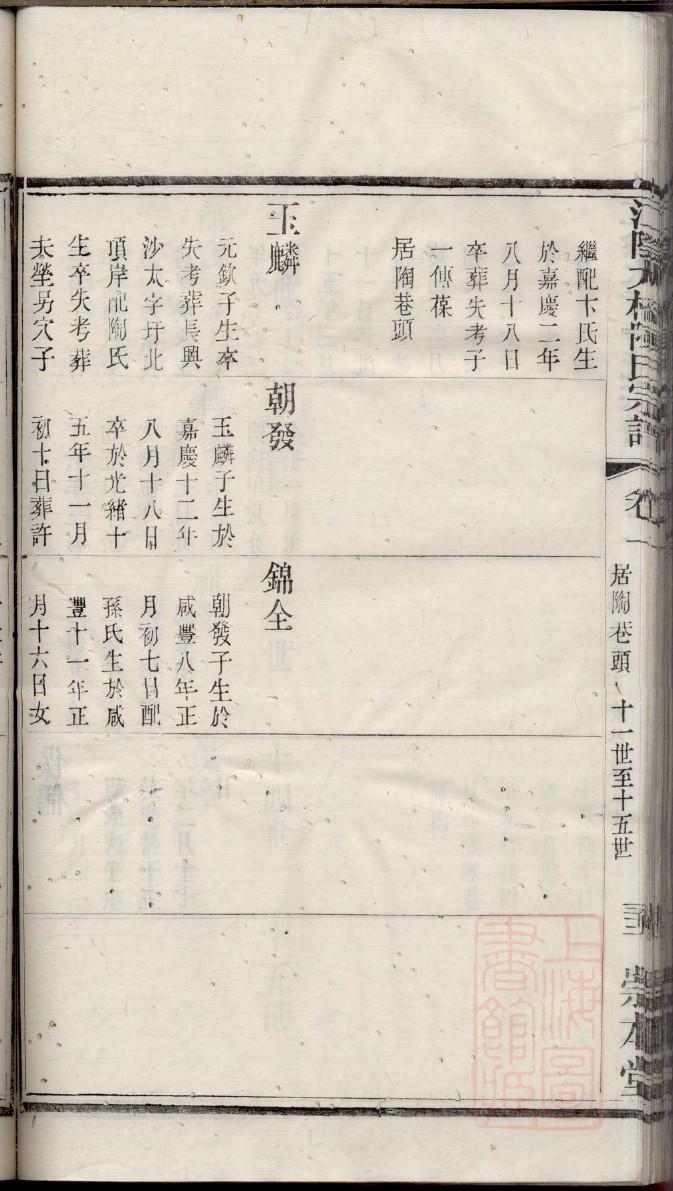 繼配卞氏生
於嘉慶二年
八月十八日
卒葬失考子
一傳葆
居陶巷頭
玉麟
元欽子生卒
失考葬長興
沙太字圩北
頂岸配陶氏
生卒失考葬
未塋另穴子
朝發
玉麟子生於
嘉慶十二年
八月十八日
卒於光緒十
五年十一月
初十日葬許
錦全
朝發子生於
咸豐八年正
月初七日配
孫氏生於咸
豐十一年正
月十六日女
氏宗譜
居陶巷頭 十一世至十五世
崇本堂
上海圖書館藏